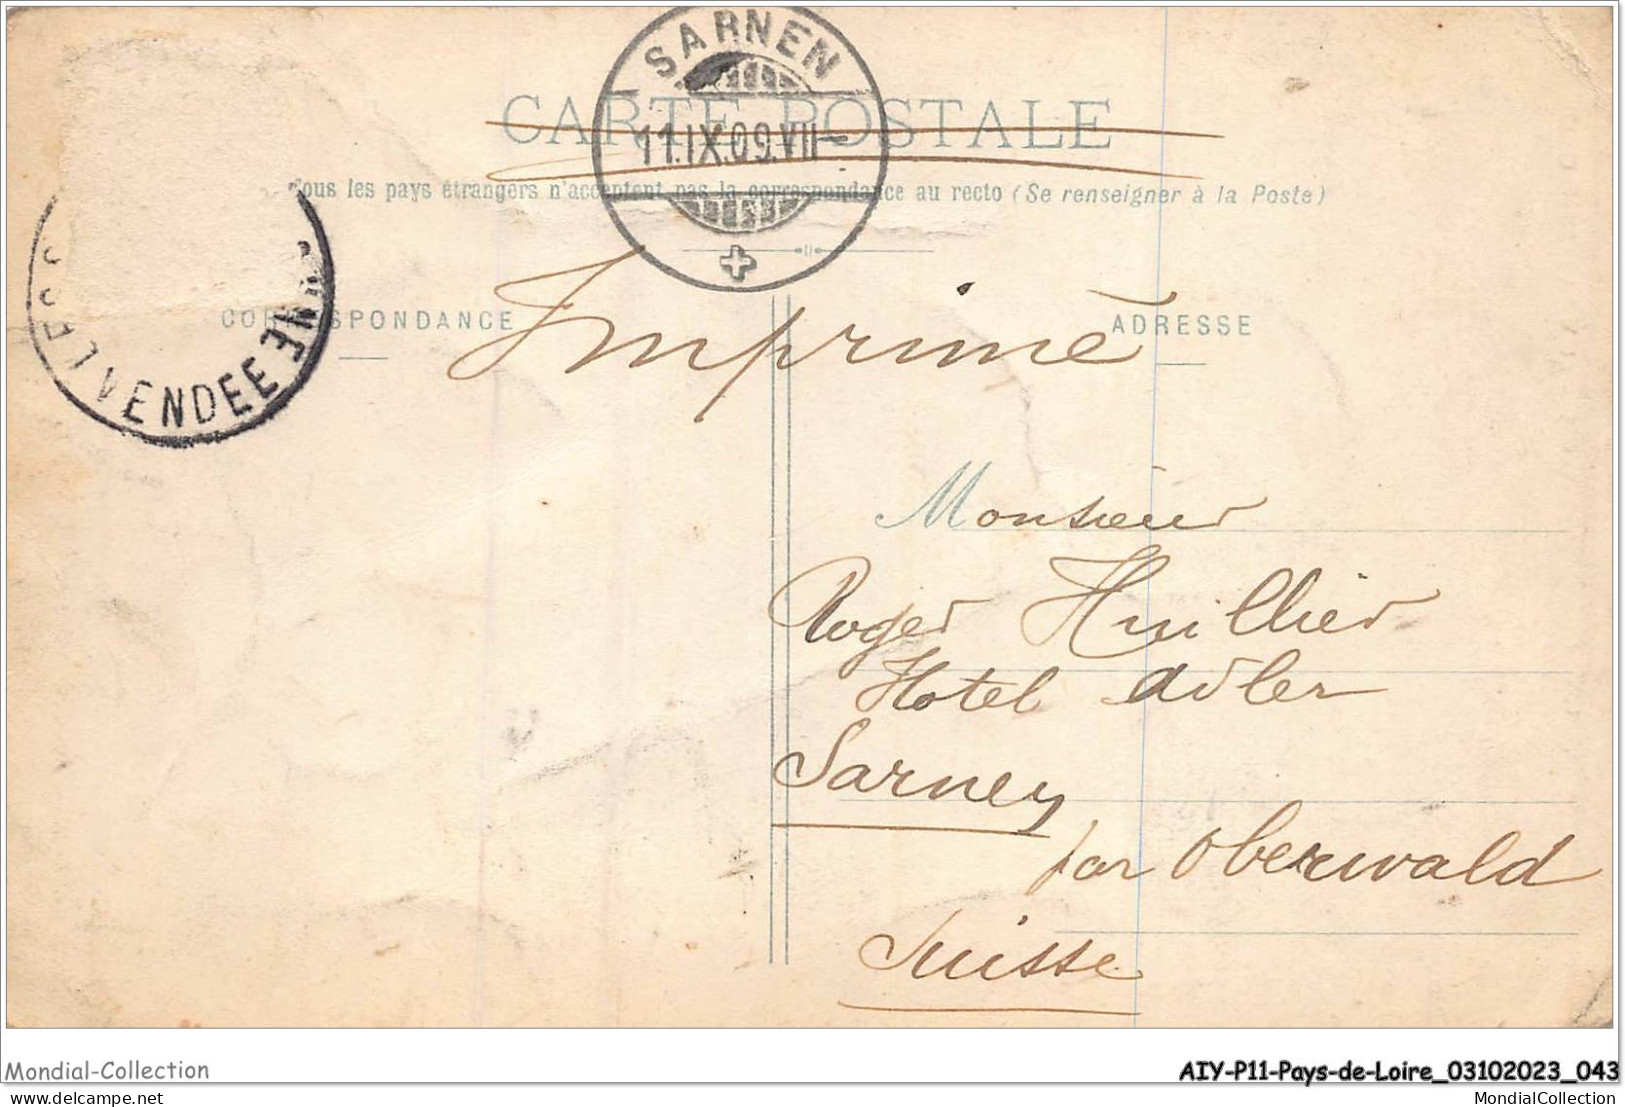 SARNEN
CARTE POSTALE
11.IX.09.VII-
Tous les pays étrangers n'acceptent pas la correspondance au recto (Se renseigner à la Poste)
Imprimé
CORRESPONDANCE
ADRESSE
VENDEE
Monsieur
Roger Huillier
Hotel Adler
Sarney
par Oberwald
Suisse
Mondial-Collection
AIY-P11-Pays-de-Loire_03102023_043
MondialCollection